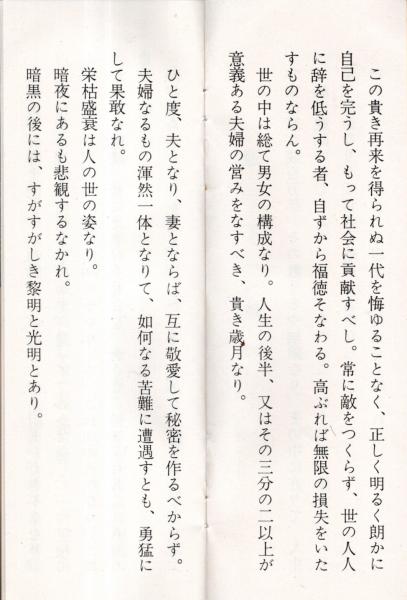 この貴き再来を得られぬ一代を悔ゆることなく、正しく明るく朗かに
自己を完うし、もって社会に貢献すべし。常に敵をつくらず、世の人人
に辞を低うする者、自ずから福徳そなわる。高ぶれば無限の損失をいた
すものならん。
世の中は総て男女の構成なり。人生の後半、又はその三分の二以上が
意義ある夫婦の営みをなすべき、貴き歳月なり。
ひと度、夫となり、妻とならば、互に敬愛して秘密を作るべからず。
夫婦なるもの渾然一体となりて、如何なる苦難に遭遇すとも、勇猛に
して果敢なれ。
栄枯盛衰は人の世の姿なり。
暗夜にあるも悲観するなかれ。
暗黒の後には、すがすがしき黎明と光明とあり。